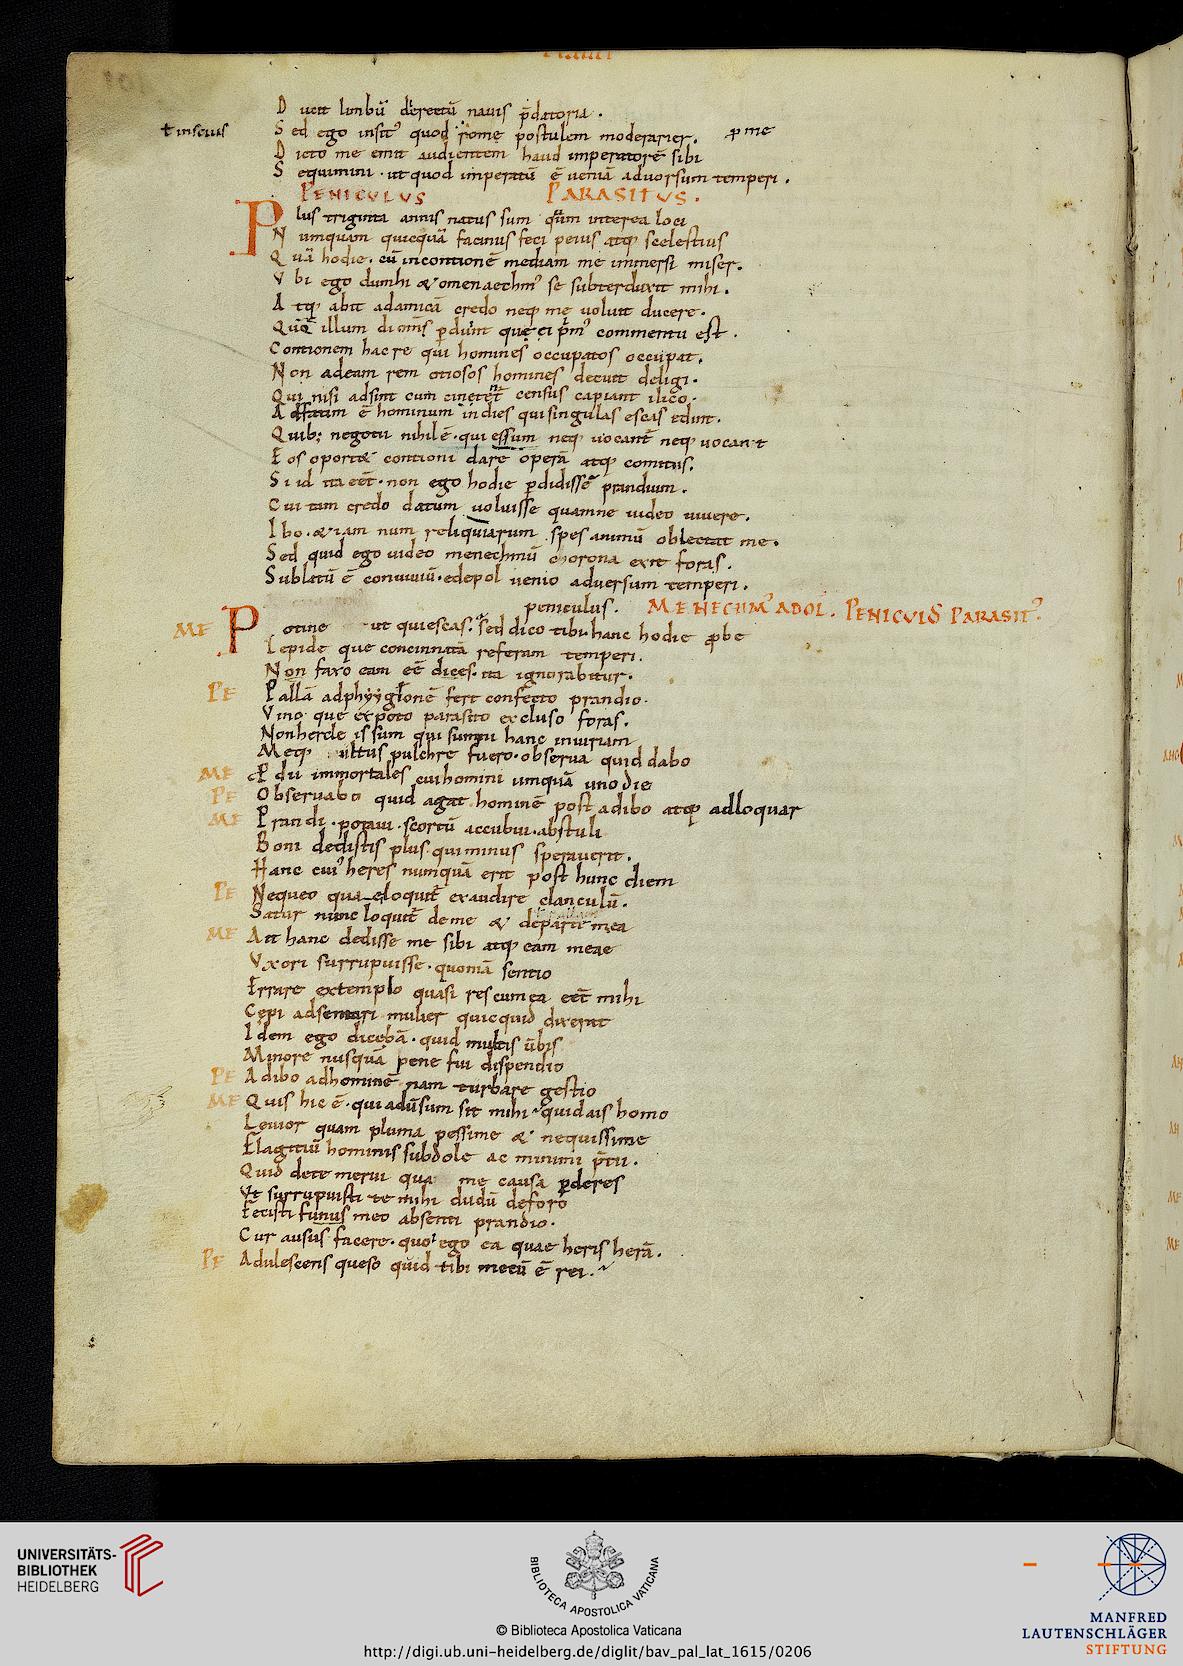 D ucit lonbū derectū nauis p̄datoria .
ł inscius S ed ego insit᷒ quod rome postulem moderarier. ꝑ me
D icto me emit audientem haud imperatorē sibi
S equimini · ut quod imperatū ē ueniā aduorsum temperi .
PENICULUS PARASITUS .
P lus triginta annis natus sum quū interea loci
N umquam quicquā facinus feci peius atq; scelestius
Q uā hodie . cū incontionē mediam me immersi miser .
V bi ego dumhi & omenaechm᷒ se subterduxit mihi .
A tq; abit adamicā credo neq; me uoluit ducere .
illum di om̄s ꝑdunt que ci p̄m᷒ commentu est .
Contionem hac re qui homines occupatos occupat .
Non adeam rem otiosos homines decuit deligi .
Qui nisi adsint cum citent̄ census capiant ilico .
A dfatim ē hominum indies qui singulas escas edint .
Quib; negotii nihil ē . qui essum neq; uocant̄ neq; uocant
Eos oport& contioni dare operā atq; comitiis .
Si id ita eēt . non ego hodie ꝑdidisse prandium .
Cui tam credo datum uoluisse quamne uideo uiuere .
Ibo . & iam num reliquiarum spes animū oblectat me .
Sed quid ego uideo menechmū corona exit foras .
Sublatū ē conuiuiū . edepol uenio aduersum temperi .
peniculus . MENECHM᷒ ADOL . PENICVL᷒ PARASIT᷒
ME P otine ut quiescas . sed dico tibi hanc hodie ꝓbe
Lepide que concinnatā referam temperi .
Non faxo eam eē dices . ita ignorabitur .
PE Pallā adphrygionē fert confecto prandio .
Vino que expoto parasito excluso foras .
Non hercle is sum qui sum hanc iniuriam
Meq; ultus pulchre fuero . obserua quid dabo
ME P dii immortales cui homini umquā uno die
PE Obseruabo quid agat hominē post adibo atq; adloquar
ME Prandi . potaui . scortū accubui . abstuli
Boni dedistis plus qui minus sperauerit .
Hanc cui᷒ heres numquā erit post hunc diem
PE Nequeo qua eloquit̄ exaudire clanculū .
Satur nunc loquit̄ de me & de parti mea
ME Ait hanc dedisse me sibi atq; eam meae
Vxori surrupuisse . quomā sentio
Errare extemplo quasi res cum ea eēt mihi
Cepi adsentari mulier quicquid dixerat
Idem ego dicebā . quid multis ūbis
Minore nusquā pene fui dispendio
PE Adibo adhominē nam turbare gestio
ME Quis hic ē . qui adūsum sit mihi quid ais homo
Leuior quam pluma pessime & nequissime
Flagitiū hominis subdole ac minimi p̄tii .
Quid de te merui qua me causa ꝑderes
Vt surrupuisti te mihi dudū de foro
Fecisti funus meo absenti prandio .
Cur ausus facere . quoi ego ea quae heris herā .
PE Adulescens queso quid tibi mecū ē rei .
UNIVERSITÄTS-
BIBLIOTHEK
HEIDELBERG
BIBLIOTECA APOSTOLICA VATICANA
© Biblioteca Apostolica Vaticana
http://digi.ub.uni-heidelberg.de/diglit/bav_pal_lat_1615/0206
MANFRED
LAUTENSCHLÄGER
STIFTUNG